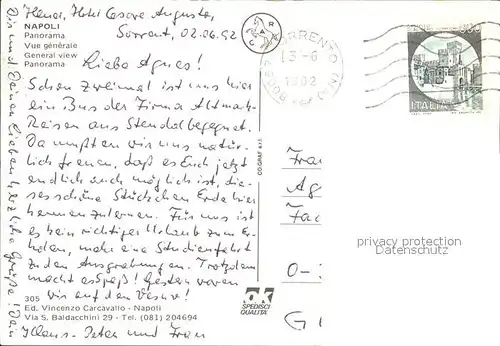 Hotel Cesare Augusto,
Sorrent, 02.06.92
NAPOLI
Panorama
Vue générale
General view
Panorama
Liebe Agnes!
Schon zweimal ist uns hier
ein Bus der Firma Altmark-
Reisen aus Stendal begegnet.
Da mußten wir uns natür-
lich freuen, daß es Euch jetzt
endlich auch möglich ist, die-
ses schöne Stückchen Erde hier
kennenzulernen. Für uns ist
es kein richtiger Urlaub zum Er-
holen, mehr eine Studienfahrt
zu den Ausgrabungen. Trotzdem
macht es Spaß! Gestern waren
wir auf dem Vesuv!
Dir und Deinen Lieben herzliche Grüße! Dein
Klaus-Peter und Frau
305
Ed. Vincenzo Carcavallo - Napoli
Via S. Baldacchini 29 - Tel. (081) 204694
CO.GRAF s.r.l.
OK
SPEDISCI
QUALITÀ
CRA
SORRENTO (NA)
3-6
ITALIA
Frau
Ag
Fac
O-3
G
privacy protection
Datenschutz